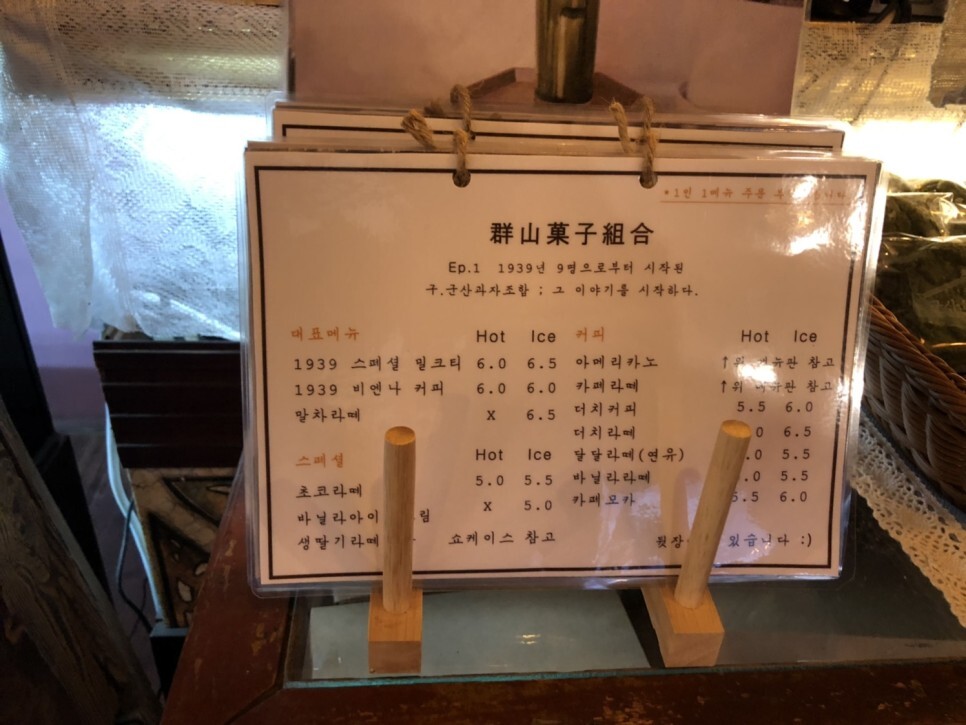 *1인 1메뉴 주문
群山菓子組合
Ep.1 1939년 9명으로부터 시작된
구.군산과자조합 ; 그 이야기를 시작하다.
대표메뉴 Hot Ice
1939 스페셜 밀크티 6.0 6.5
1939 비엔나 커피 6.0 6.0
말차라떼 X 6.5
스페셜 Hot Ice
초코라떼 5.0 5.5
바닐라아이 림 X 5.0
생딸기라떼 쇼케이스 참고
커피 Hot Ice
아메리카노 ↑위 메뉴판 참고
카페라떼 ↑위 메뉴판 참고
더치커피 5.5 6.0
더치라떼 .0 6.5
달달라떼(연유) .0 5.5
바닐라라떼 .0 5.5
카페모카 5.5 6.0
뒷장 있습니다 :)